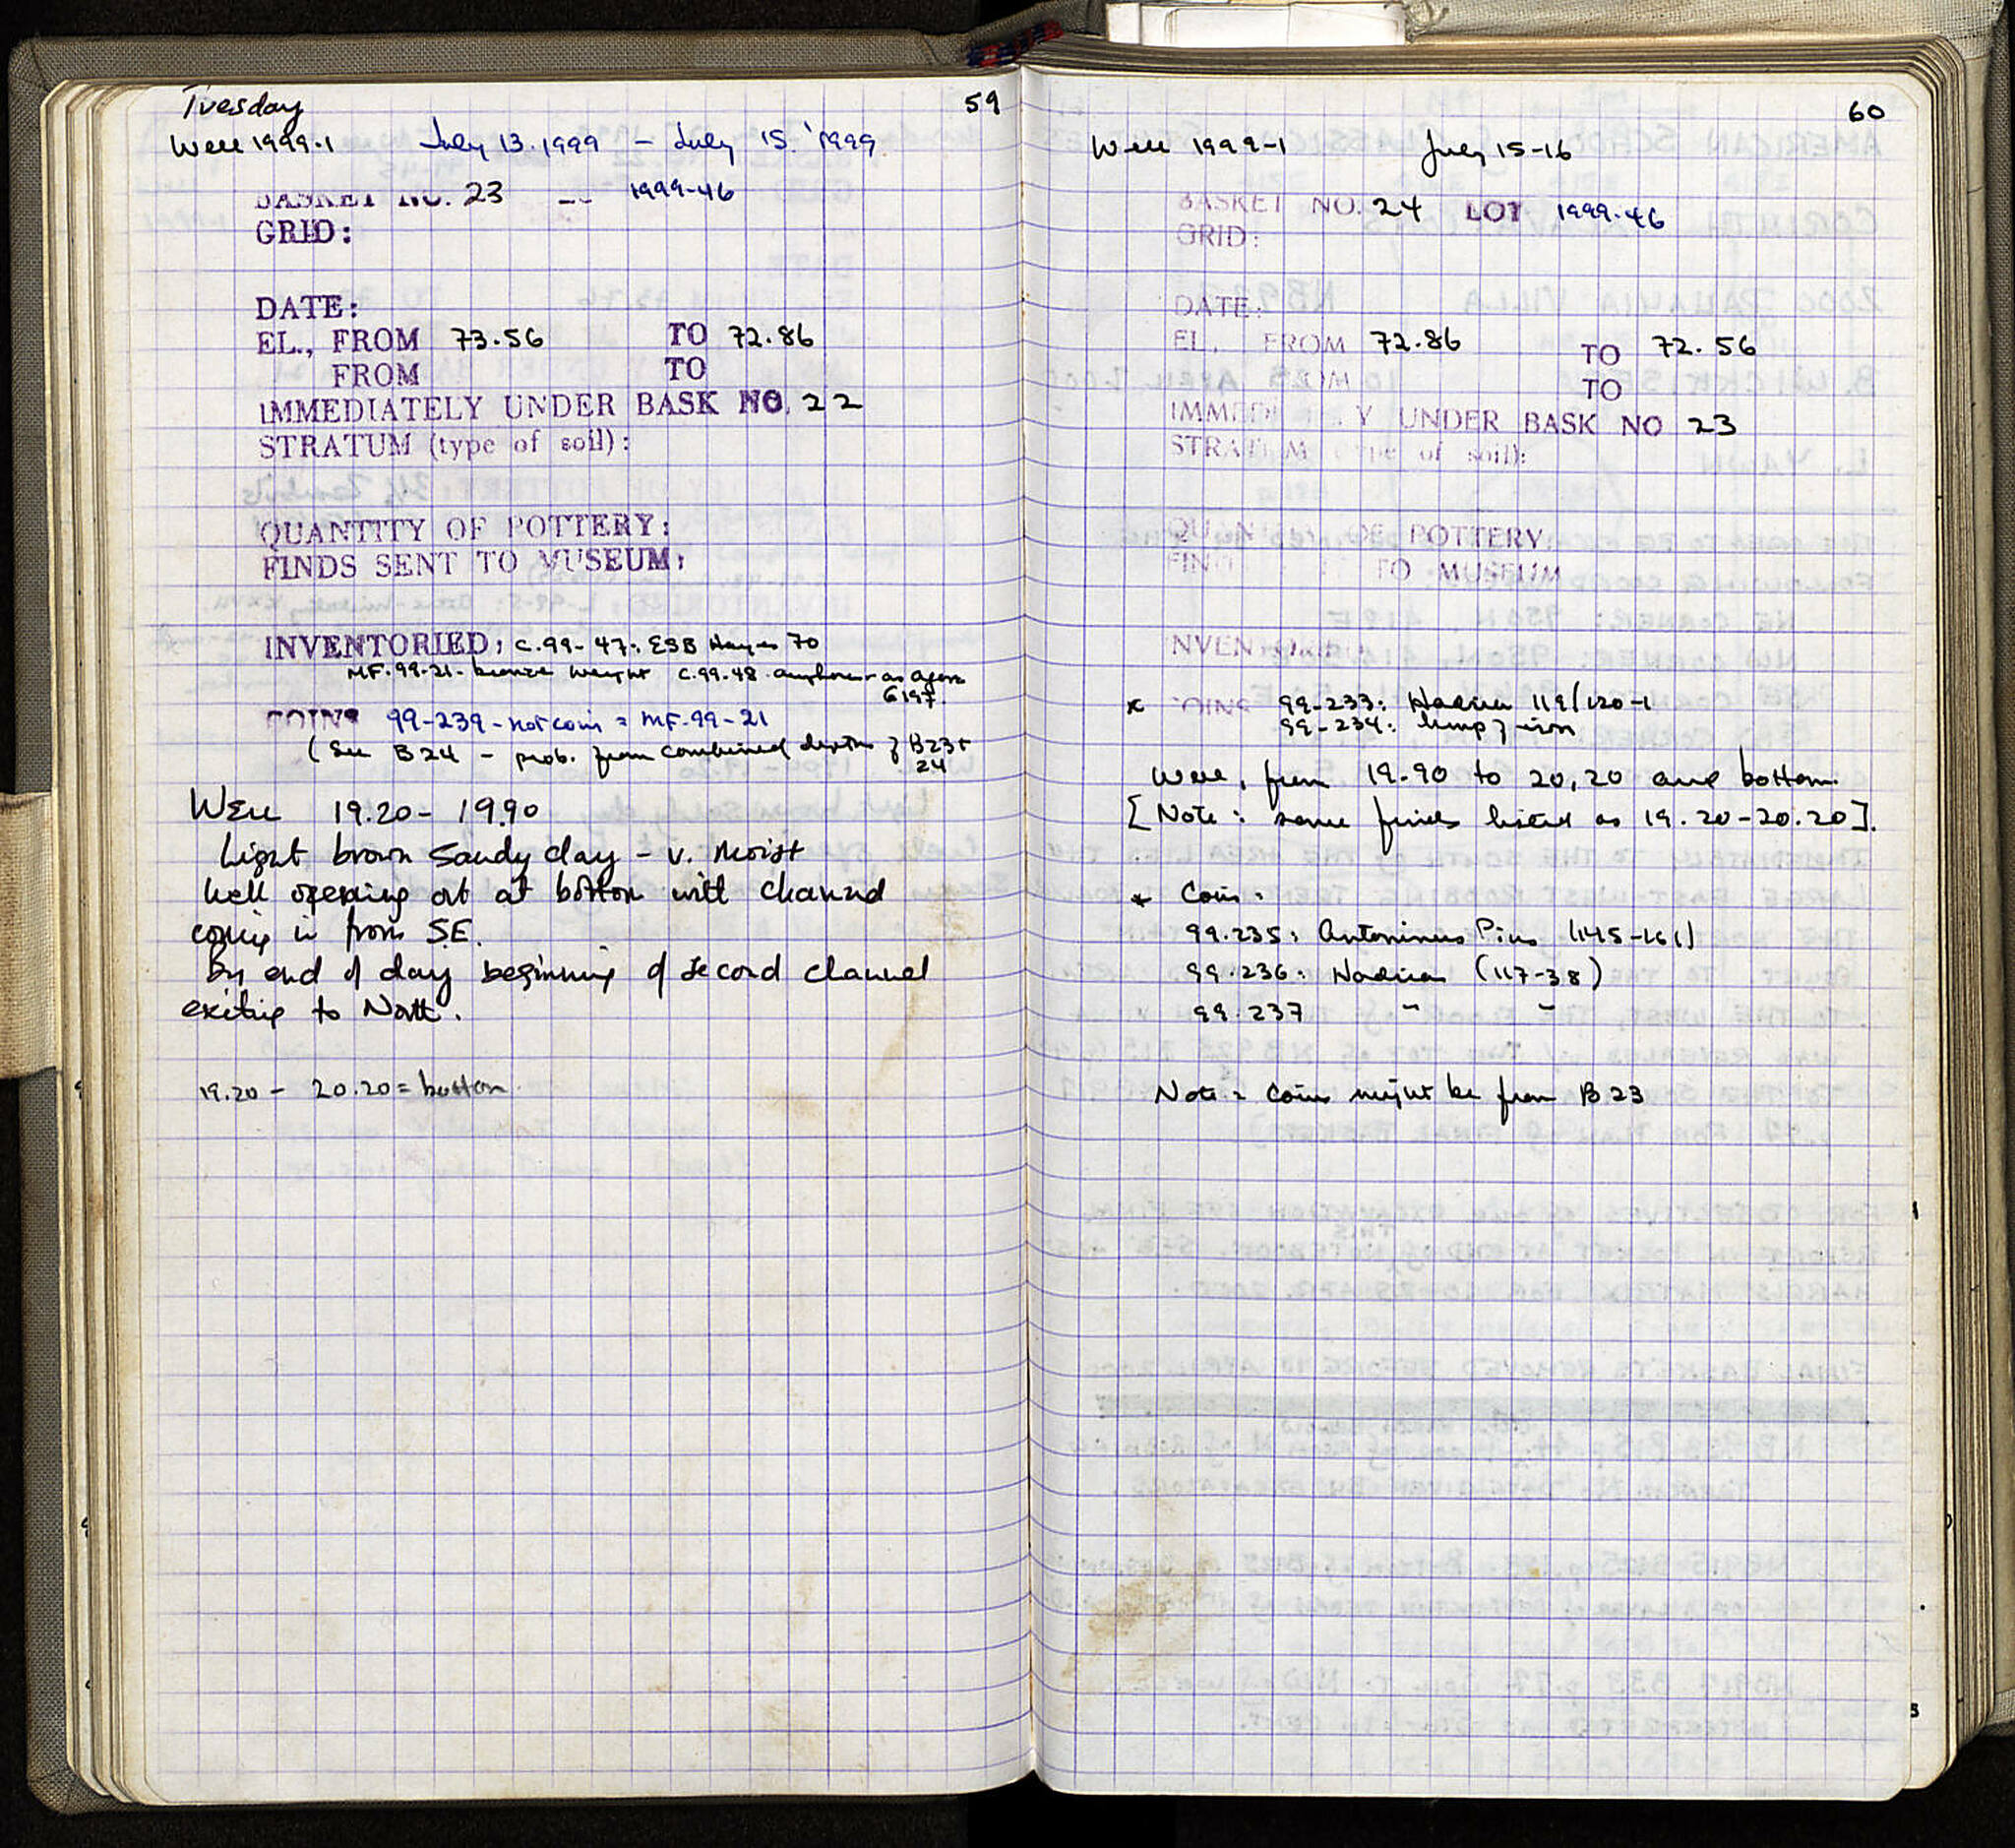 Tuesday
59
Well 1999-1 July 13.1999 - July 15. 1999
BASKET NO. 23 1999-46
GRID:
DATE:
EL., FROM 73.56 TO 72.86
FROM TO
IMMEDIATELY UNDER BASK NO. 22
STRATUM (type of soil):
QUANTITY OF POTTERY:
FINDS SENT TO MUSEUM:
INVENTORIED: C.99-47: ESB Hayes 70
MF.99-21- bronze weight C.99-48 amphora as agora
G197.
COINS 99-239 - not coin = MF-99-21
(See B24 - prob. from combined depth of B23+
24
Well 19.20 - 19.90
Light brown sandy clay - v. moist
Well opening out at bottom with channel
coming in from SE.
By end of day beginning of second channel
exiting to North.
19.20 - 20.20 = bottom.
60
Well 1999-1 July 15-16
BASKET NO. 24 LOT 1999-46
GRID:
DATE:
EL., FROM 72.86 TO 72.56
TO
IMMEDI Y UNDER BASK NO 23
STRATUM (type of soil):
QUANTITY OF POTTERY
FIN TO MUSEUM
NVENTORIED
* COINS 99-233: Hadrian 119/120-1
99-234: lump of iron
Well, from 19.90 to 20.20 and bottom.
[Note: some finds listed as 19.20-20.20].
* Coin:
99.235: Antoninus Pius (145-161)
99.236: Hadrian (117-38)
99.237 " "
Note: Coins might be from B23